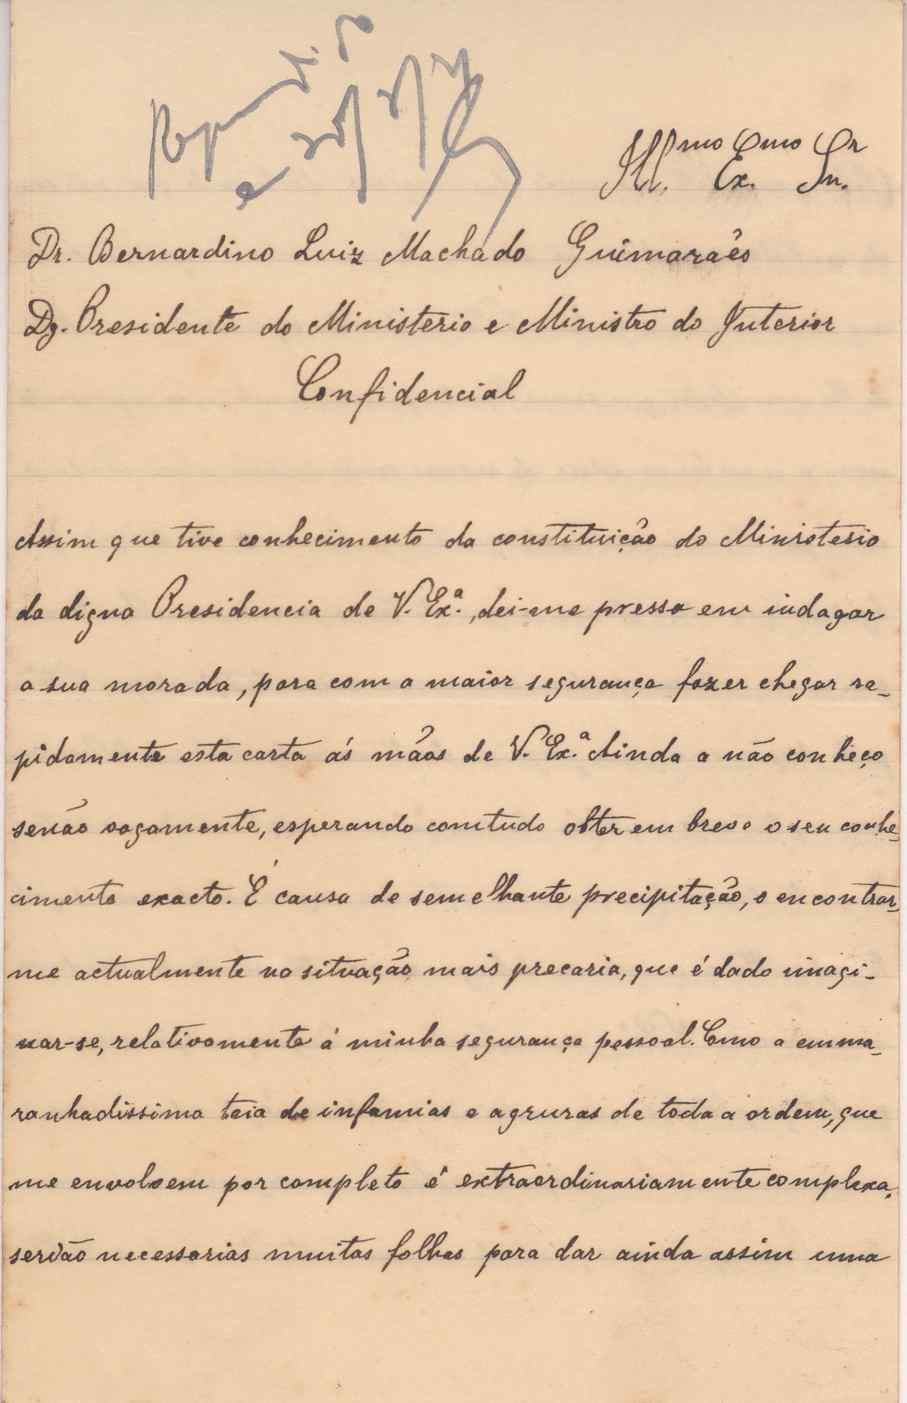 Ill.mo Ex.mo Sr.
Dr. Bernardino Luiz Machado Guimarães
Dg. Presidente do Ministerio e Ministro do Interior
Confidencial
Assim que tive conhecimento da constituição do Ministerio
da digna Presidencia de V. Ex.ª, dei-me pressa em indagar
a sua morada, para com a maior segurança fazer chegar ra-
pidamente esta carta ás mãos de V. Ex.ª Ainda a não conheço
senão vagamente, esperando comtudo obter em breve o seu conhe-
cimento exacto. É causa de semelhante precipitação, o encontrar-
me actualmente na situação mais precaria, que é dado imagi-
nar-se, relativamente á minha segurança pessoal. Como a emma-
ranhadissima teia de infamias e agruras de toda a ordem, que
me envolvem por completo é extraordinariamente complexa,
serão necessarias muitas folhas para dar ainda assim uma